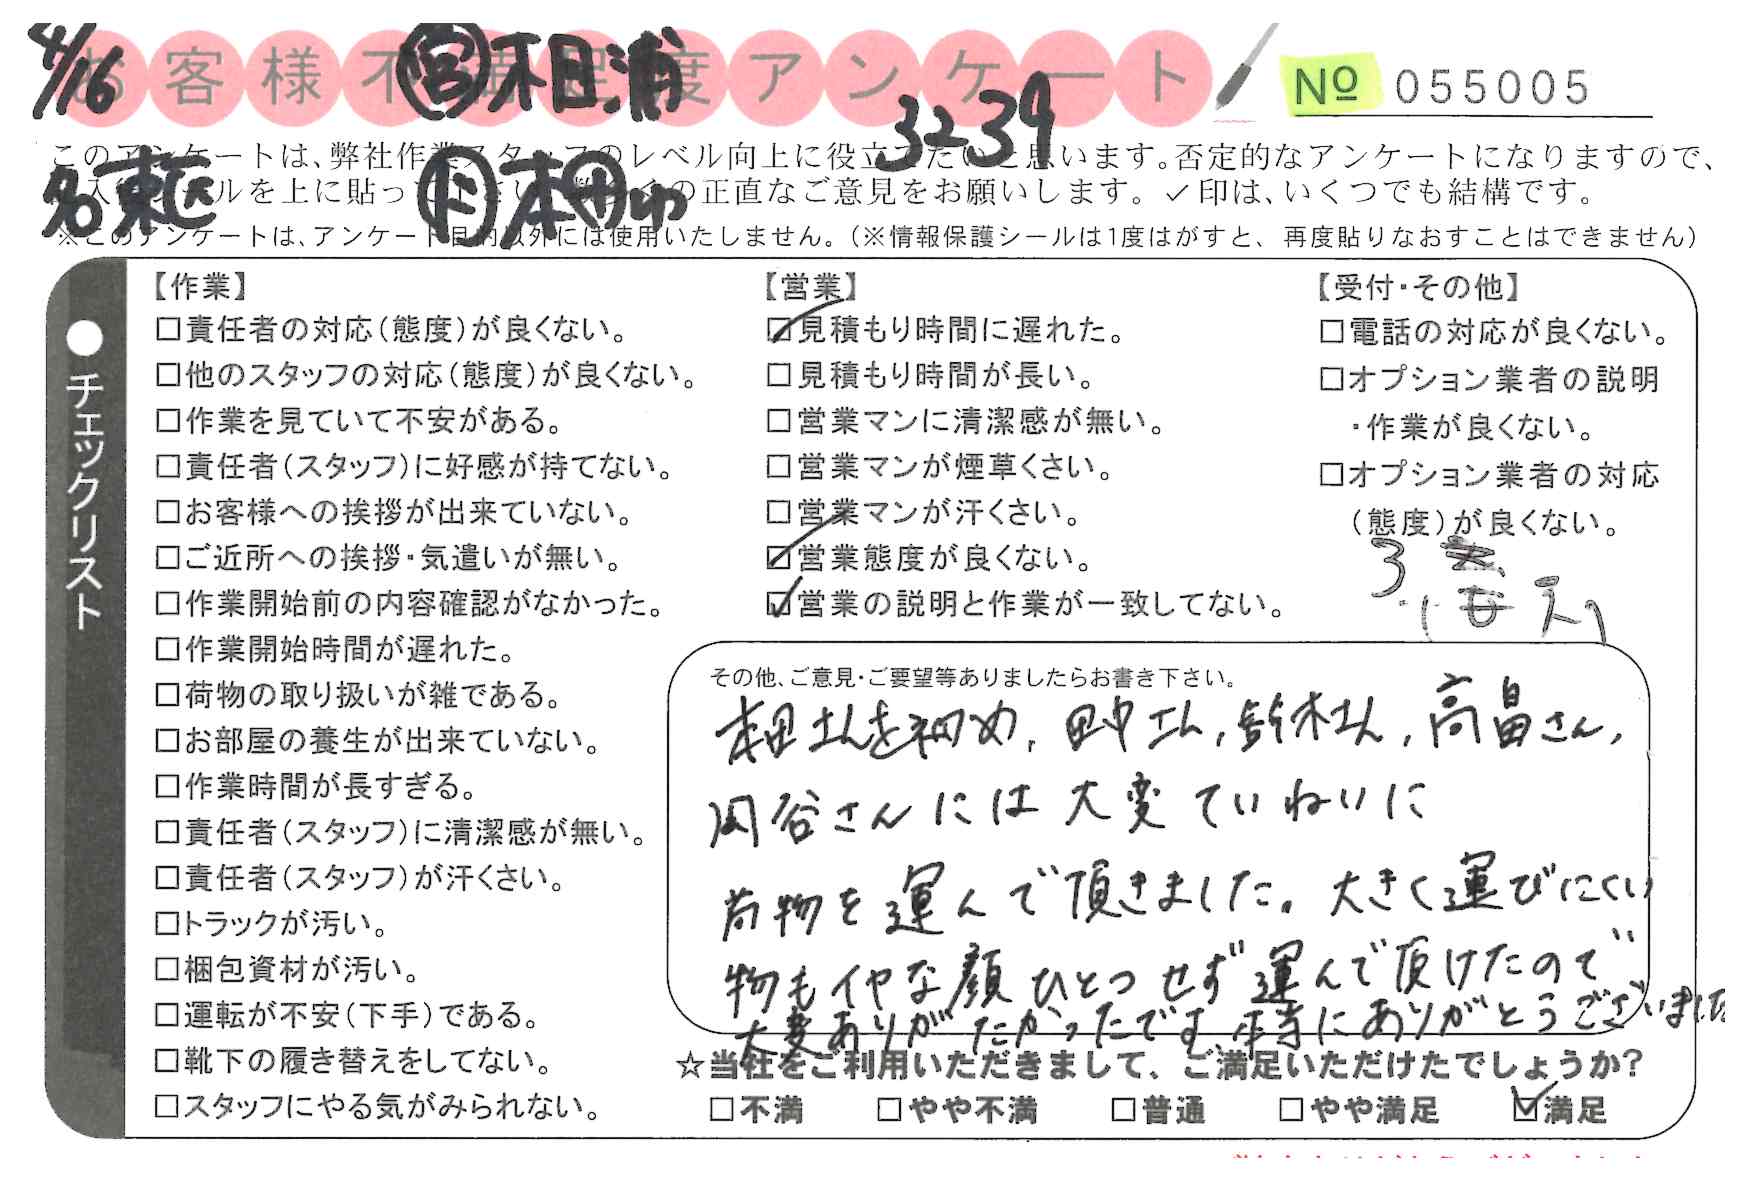 4/16
お客様不満足度アンケート
㊂相浦
No 055005
3239
このアンケートは、弊社作業スタッフのレベル向上に役立てたいと思います。否定的なアンケートになりますので、
名東区
本田
ルを上に貼って の正直なご意見をお願いします。✓印は、いくつでも結構です。
※このアンケートは、アンケート目的以外には使用いたしません。(※情報保護シールは1度はがすと、再度貼りなおすことはできません)
●チェックリスト
【作業】
□責任者の対応(態度)が良くない。
□他のスタッフの対応(態度)が良くない。
□作業を見ていて不安がある。
□責任者(スタッフ)に好感が持てない。
□お客様への挨拶が出来ていない。
□ご近所への挨拶・気遣いが無い。
□作業開始前の内容確認がなかった。
□作業開始時間が遅れた。
□荷物の取り扱いが雑である。
□お部屋の養生が出来ていない。
□作業時間が長すぎる。
□責任者(スタッフ)に清潔感が無い。
□責任者(スタッフ)が汗くさい。
□トラックが汚い。
□梱包資材が汚い。
□運転が不安(下手)である。
□靴下の履き替えをしてない。
□スタッフにやる気がみられない。
【営業】
☑見積もり時間に遅れた。
□見積もり時間が長い。
□営業マンに清潔感が無い。
□営業マンが煙草くさい。
□営業マンが汗くさい。
☑営業態度が良くない。
☑営業の説明と作業が一致してない。
【受付・その他】
□電話の対応が良くない。
□オプション業者の説明
・作業が良くない。
□オプション業者の対応
(態度)が良くない。
3
その他、ご意見・ご要望等ありましたらお書き下さい。
本田さんを初め, 田中さん, 鈴木さん, 高畠さん,
岡谷さんには大変ていねいに
荷物を運んで頂きました。大きく運びにくい
物もイヤな顔ひとつせず運んで頂けたので
大変ありがたかったです。本当にありがとうございました
☆当社をご利用いただきまして、ご満足いただけたでしょうか?
□不満 □やや不満 □普通 □やや満足 ☑満足